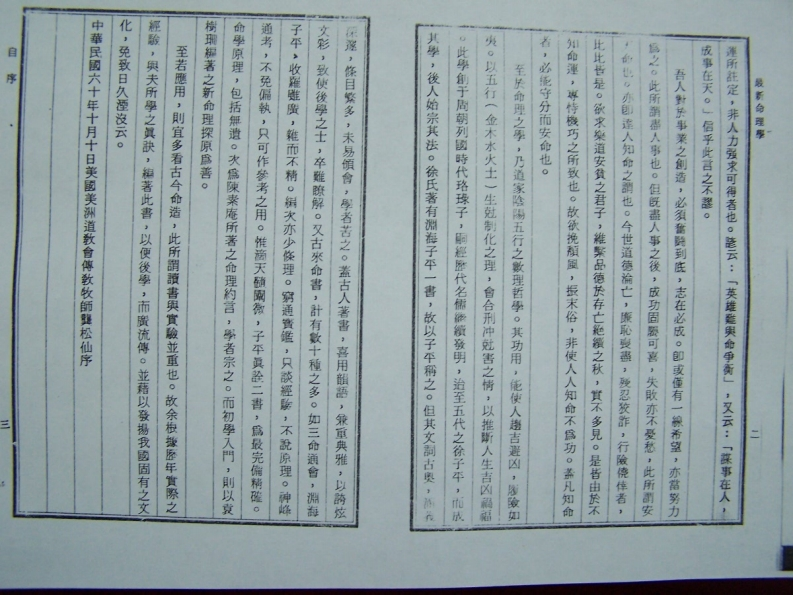 最新命理學
二
運所註定，非人力強求可得者也。諺云：「英雄難與命爭衡」，又云：「謀事在人，
成事在天。」信乎此言之不謬。
吾人對於事業之創造，必須奮鬪到底，志在必成。即或僅有一線希望，亦當努力
爲之。此所謂盡人事也。但既盡人事之後，成功固屬可喜，失敗亦不憂愁，此所謂安
命也。亦即達人知命之謂也。今世道德淪亡，廉恥喪盡，殘忍狡詐，行險僥倖者，
比比皆是。欲求樂道安貧之君子，維繫品德於存亡絶續之秋，實不多見。是皆由於不
知命運，專恃機巧之所致也。故欲挽頹風，振末俗，非使人人知命不爲功。蓋凡知命
者，必能守分而安命也。
至於命理之學，乃道家陰陽五行之數理哲學。其功用，能使人趨吉避凶，履險如
夷。以五行（金木水火土）生尅制化之理，會合刑冲尅害之情，以推斷人生吉凶禍福
。此學創于周朝列國時代珞琭子，嗣經歷代名儒繼續發明，迨至五代之徐子平，而成
其學，後人始宗其法。徐氏著有淵海子平一書，故以子平稱之。但其文詞古奧，
深邃，條目繁多，未易領會，學者苦之。蓋古人著書，喜用韻語，兼重典雅，以誇炫
文彩，致使後學之士，卒難瞭解。又古來命書，計有數十種之多。如三命通會，淵海
子平，收羅雖廣，雜而不精。編次亦少條理。窮通寶鑑，只談經驗，不說原理。神峰
通考，不免偏執，只可作參考之用。惟滴天髓闡微，子平眞詮二書，爲最完備精確。
命學原理，包括無遺。次爲陳素庵所著之命理約言，學者宗之。而初學入門，則以袁
樹珊編著之新命理探原爲善。
至若應用，則宜多看古今命造，此所謂讀書與實驗並重也。故余根據歷年實際之
經驗，與夫所學之眞訣，編著此書，以便後學，而廣流傳。並藉以發揚我國固有之文
化，免致日久湮沒云。
中華民國六十年十月十日美國美洲道敎會傳敎牧師龔松仙序
自序
三